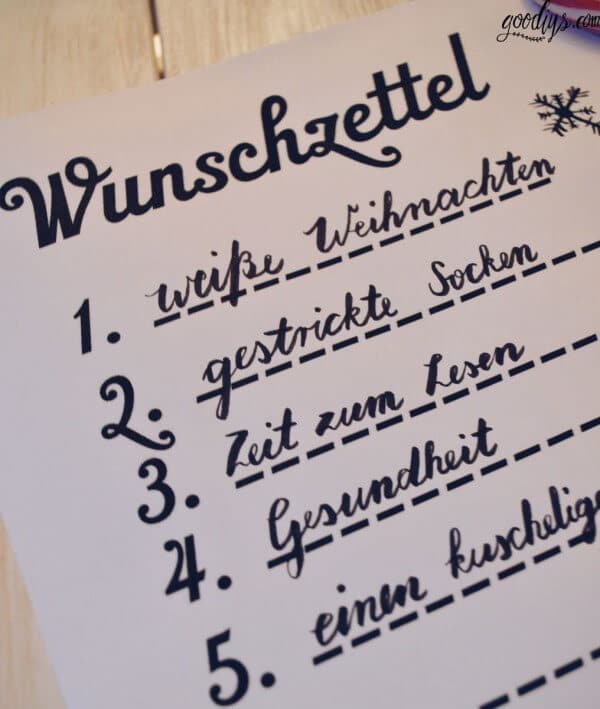 goodiys.com
Wunschzettel
1. weiße Weihnachten
2. gestrickte Socken
3. Zeit zum Lesen
4. Gesundheit
5. einen kuschelige